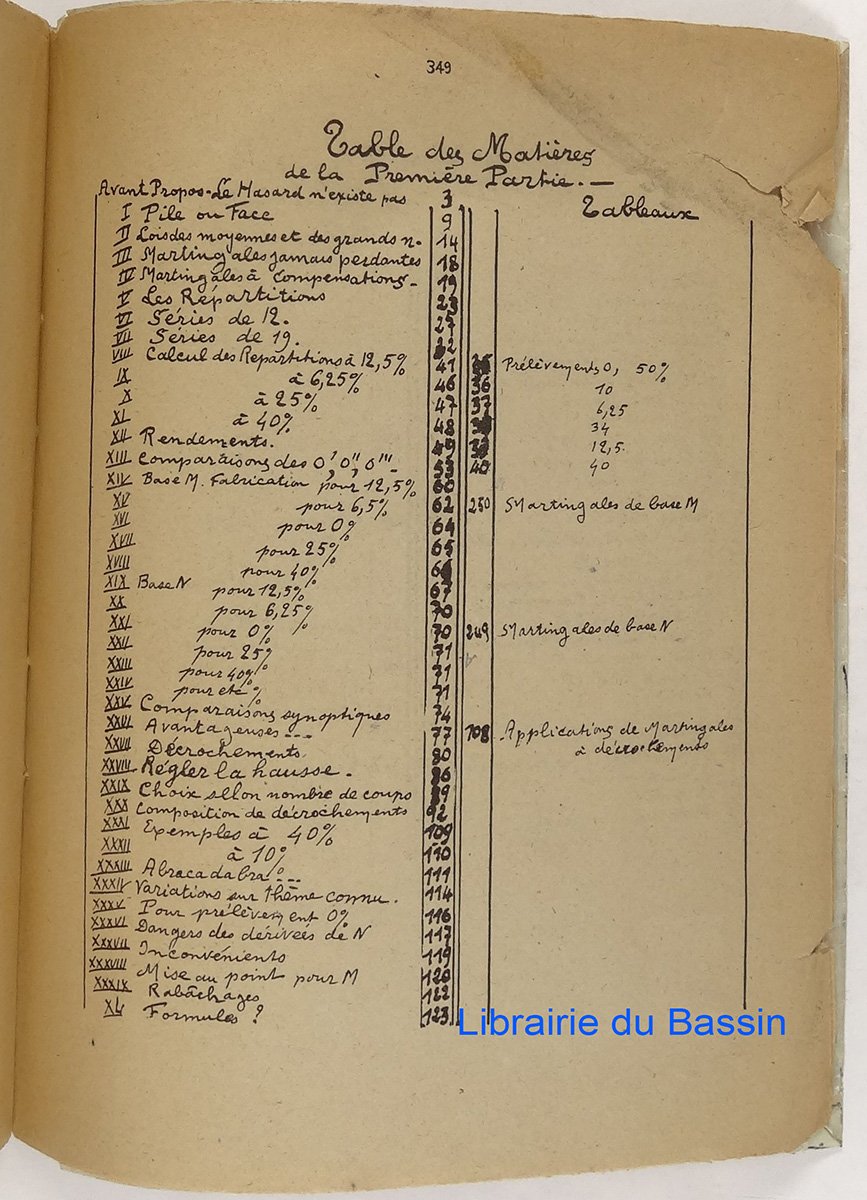 349
Table des Matières
de la Première Partie. —
Avant Propos - Le Hasard n'existe pas 3 Tableaux
I Pile ou Face 9
II Lois des moyennes et des grands n. 14
III Martingales jamais perdantes 18
IV Martingales à Compensations 19
V Les Répartitions 23
VI Séries de 12. 27
VII Séries de 19.
VIII Calcul des Répartitions à 12,5% 41 Prélèvements 0, 50%
IX à 6,25% 46 36 10
X à 25% 47 37 6,25
XI à 40% 48 34
XII Rendements. 49 12,5.
XIII Comparaisons des 0', 0'', 0''' 53 40 40
XIV Base M. Fabrication pour 12,5% 60
XV pour 6,5% 62 250 Martingales de base M
XVI pour 0% 64
XVII pour 25% 65
XVIII pour 40% 66
XIX Base N pour 12,5% 67
XX pour 6,25% 70
XXI pour 0% 70 249 Martingales de base N
XXII pour 25% 71
XXIII pour 40% 71
XXIV pour etc % 71
XXV Comparaisons synoptiques 74
XXVI Avantageuses --- 77 108 Applications de Martingales
à décrochements
XXVII Décrochements. 80
XXVIII Régler la hausse. 86
XXIX Choix sellon nombre de coups 89
XXX Composition de décrochements 92
XXXI Exemples à 40% 109
XXXII à 10% 110
XXXIII Abracadabra --- 111
XXXIV Variations sur thême connu. 114
XXXV Pour prélèvement 0% 116
XXXVI Dangers des dérivées de N 117
XXXVII Inconvénients 119
XXXVIII Mise au point pour M 120
XXXIX Rabâchages 122
XL Formules ? 123
Librairie du Bassin